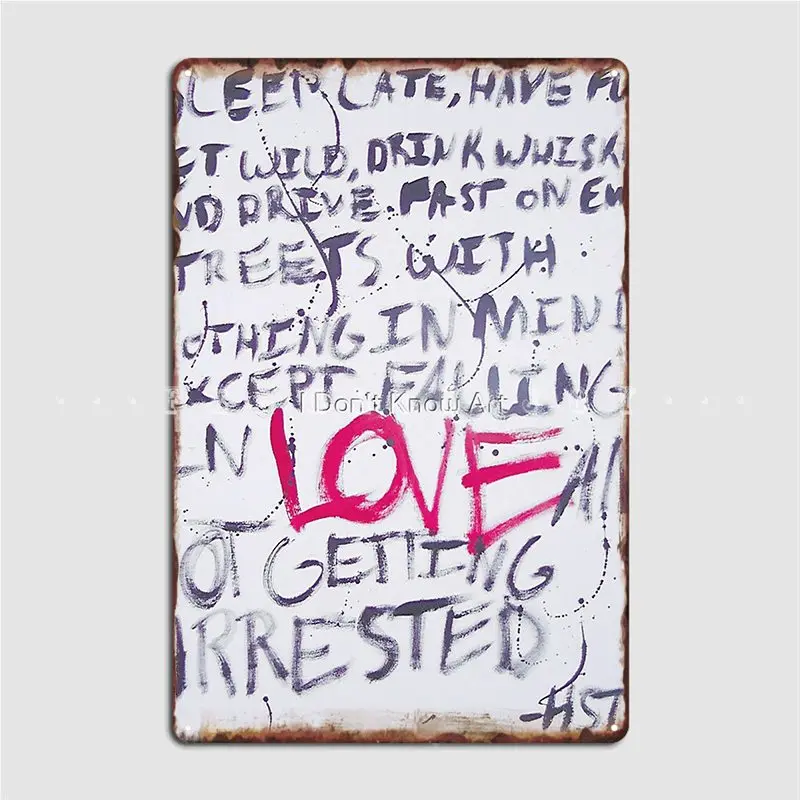 SLEEP LATE, HAVE FU
ET WILD, DRINK WHISK
ND DRIVE FAST ON EM
TREETS WITH
OTHING IN MIND
XCEPT FALLING
I Don't Know Art
IN LOVE AN
OT GETTING
ARRESTED
-HST